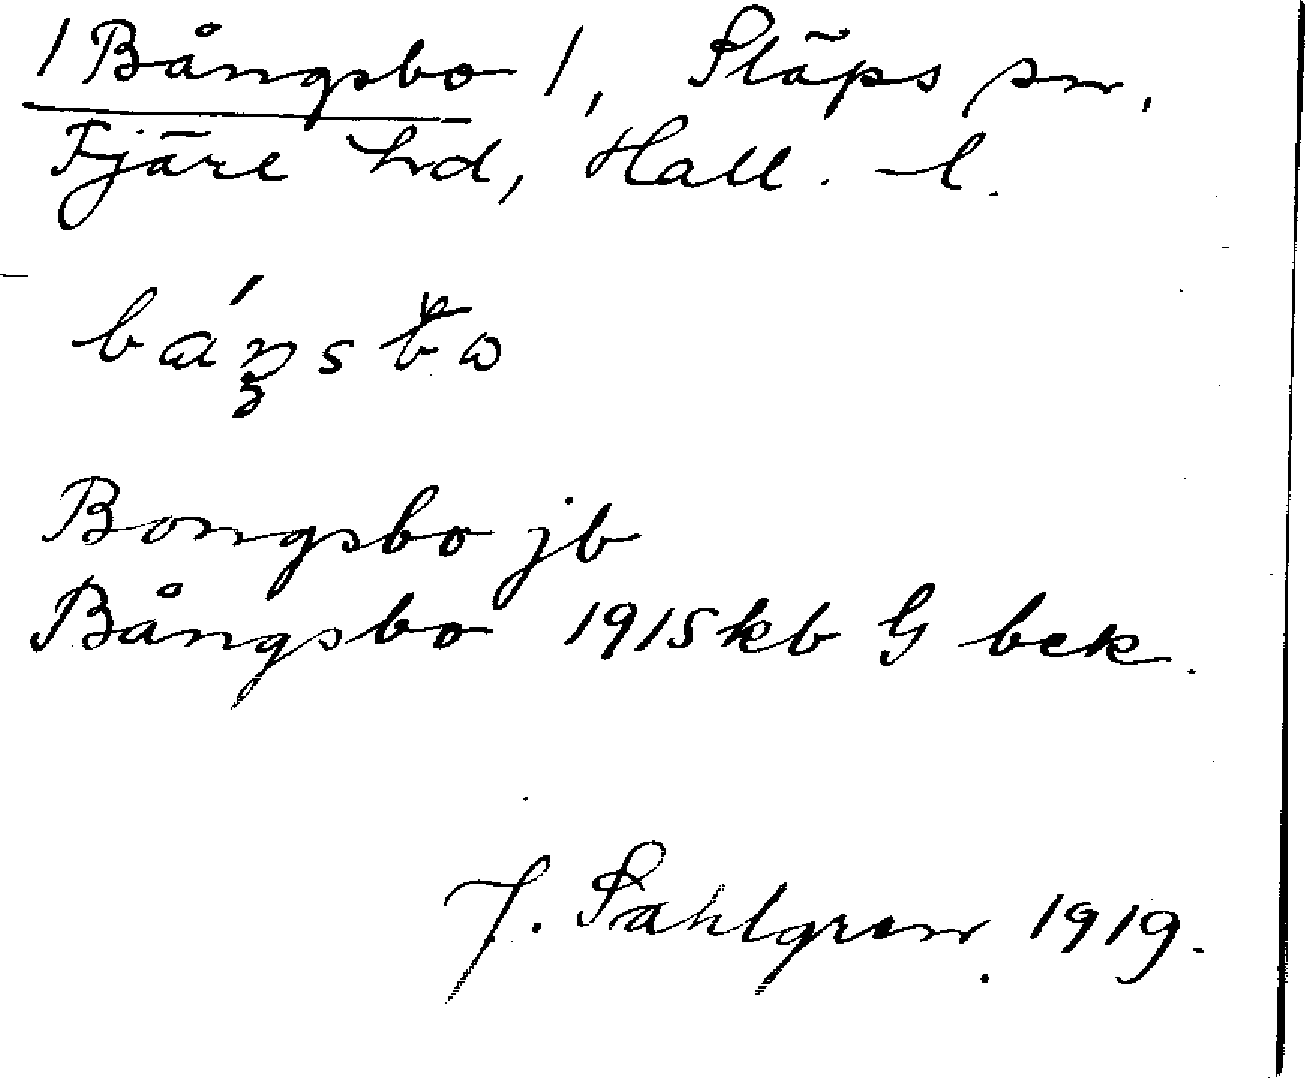 / Bångsbo /, Släps sn,
Fjäre hd, Hall. l.
Bongsbo jb
Bångsbo 1915 kb G bek.
J. Sahlgren. 1919.